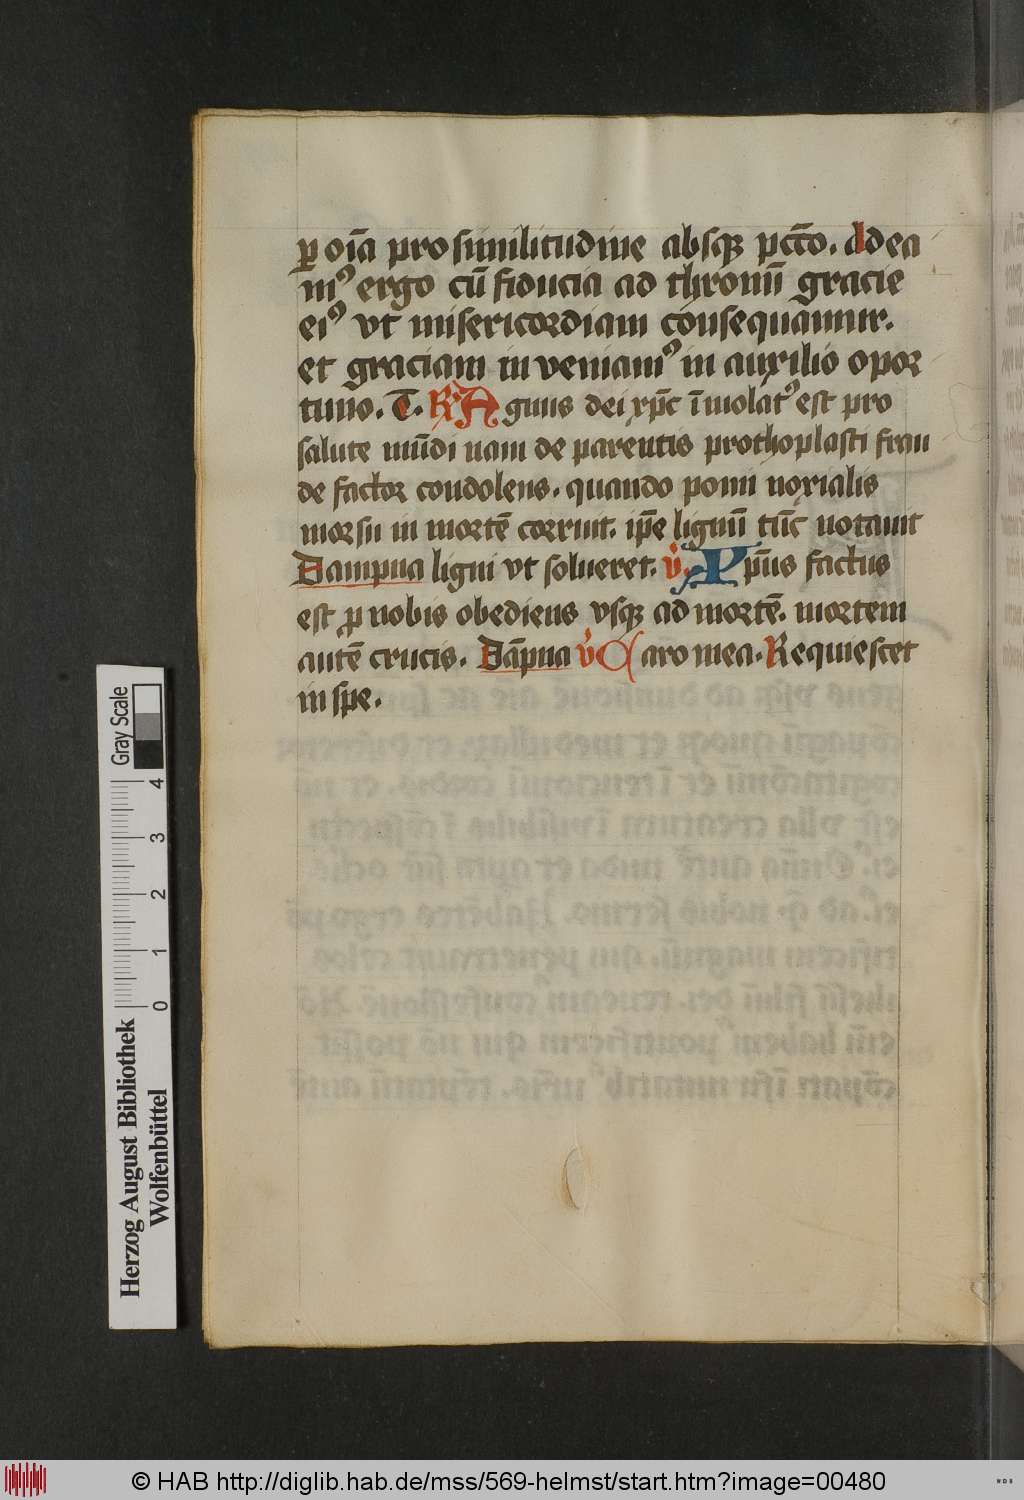 ꝑ oīa pro similitudine absqꝫ pctō. Adea
mꝰ ergo cū fiducia ad thronū gracie
eiꝰ vt misericordiam consequamur.
et graciam in veniamꝰ in auxilio opor
tuno. T. R Agnus dei xp̄c īmolatꝰ est pro
salute mūdi nam de parentis prothoplasti frau
de factor condolens. quando pomi noxialis
morsu in mortē corruit. ip̄e lignū tūc notauit
Dampna ligni vt solueret. v̇. Xp̄us factus
est ꝓ nobis obediens vsqꝫ ad mortē. mortem
autē crucis. Dāpna v̇ Caro mea. Requiescet
in spe.
Gray Scale
0 1 2 3 4
Herzog August Bibliothek
Wolfenbüttel
© HAB http://diglib.hab.de/mss/569-helmst/start.htm?image=00480